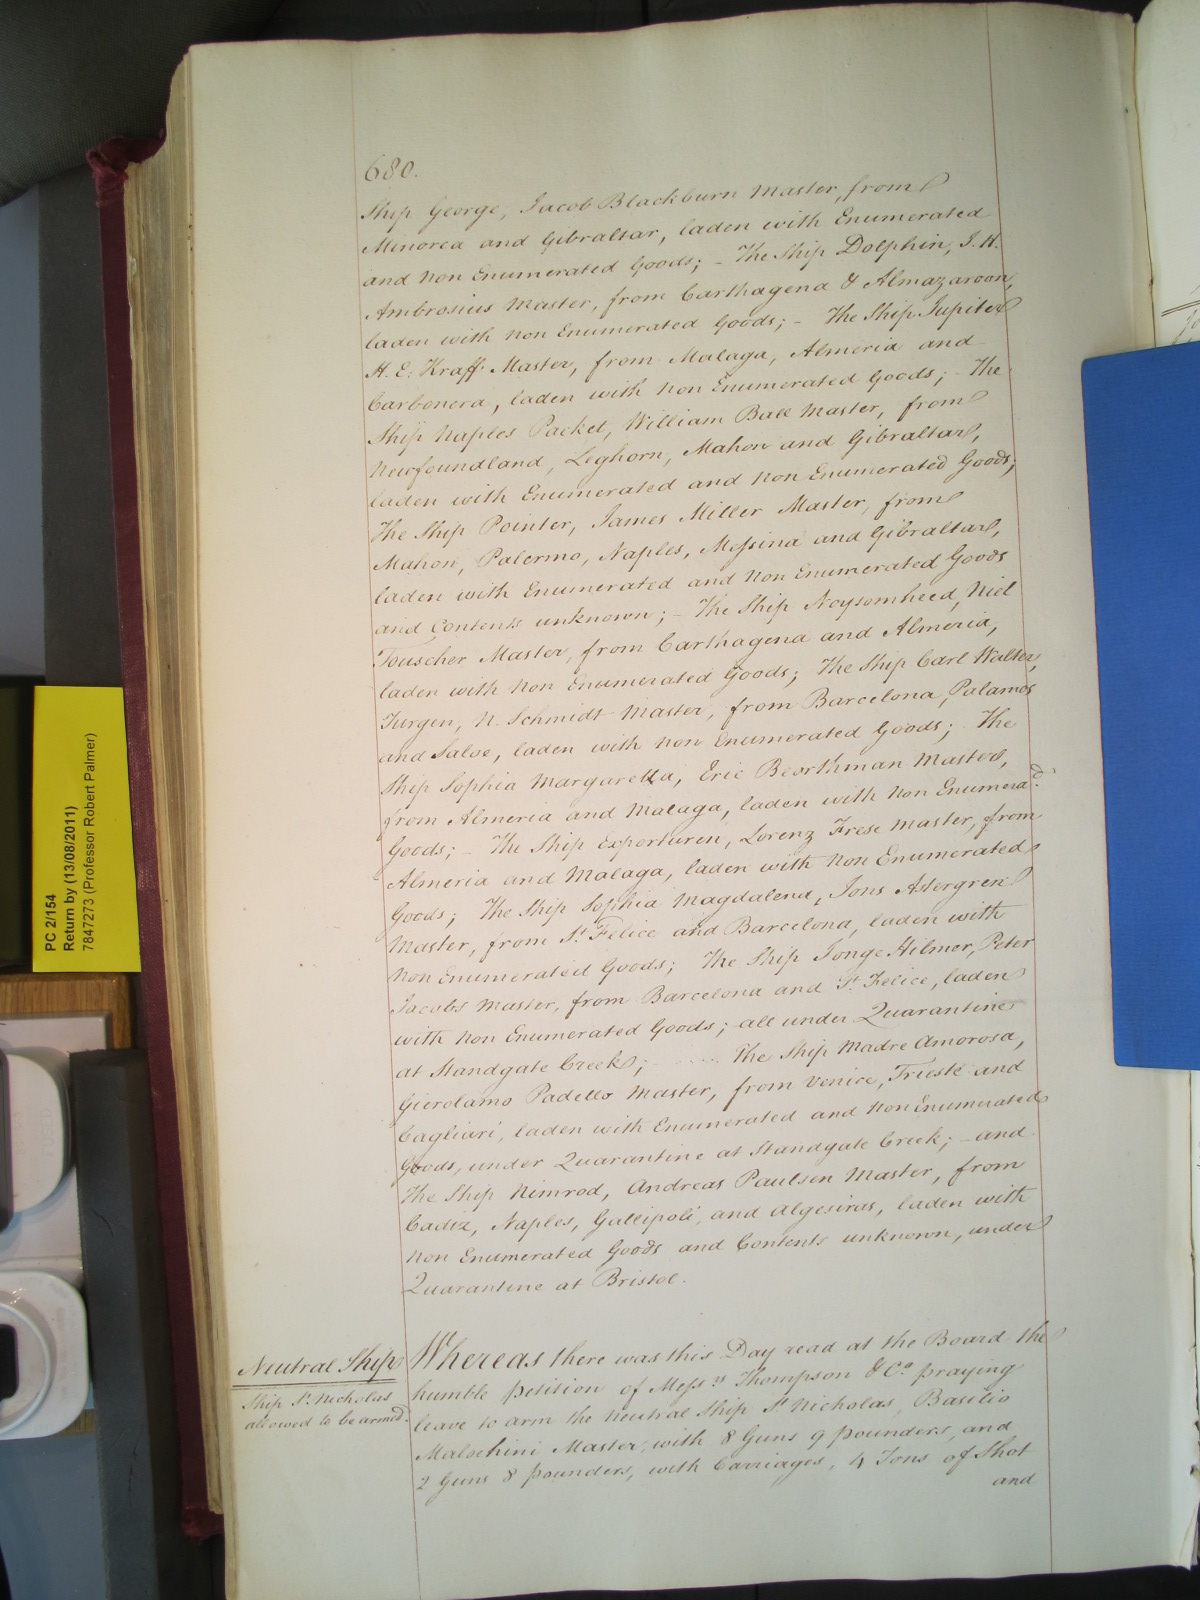 680.
Ship George, Jacob Blackburn Master, from
Minorca and Gibraltar, laden with Enumerated
and Non Enumerated Goods; - The Ship Dolphin, J. H.
Ambrosius Master, from Carthagena & Almazaroon,
laden with Non Enumerated Goods; - The Ship Jupiter
H. E. Kraff Master, from Malaga, Almeria and
Carbonera, laden with Non Enumerated Goods; - The
Ship Naples Packet, William Ball Master, from
Newfoundland, Leghorn, Mahon and Gibraltar,
laden with Enumerated and Non Enumerated Goods;
The Ship Pointer, James Miller Master, from
Mahon, Palermo, Naples, Messina and Gibraltar,
laden with Enumerated and Non Enumerated Goods
and Contents unknown; - The Ship Noysomheed, Niel
Touscher Master, from Carthagena and Almeria,
laden with Non Enumerated Goods; The Ship Carl Walter,
Jurgen, N. Schmidt Master, from Barcelona, Palamos
and Saloe, laden with Non Enumerated Goods; The
Ship Sophia Margaretta, Eric Beorthman Master,
from Almeria and Malaga, laden with Non Enumerad.
Goods; - The Ship Exporturen, Lorenz Frese Master, from
Almeria and Malaga, laden with Non Enumerated
Goods; The Ship Sophia Magdalena, Jons Astergren
Master, from St. Felice and Barcelona, laden with
Non Enumerated Goods; The Ship Jonge Hilmer, Peter
Jacobs Master, from Barcelona and St. Felice, laden
with Non Enumerated Goods; all under Quarantine
at Standgate Creek; The Ship Madre Amorosa,
Gierolamo Padello Master, from Venice, Trieste and
Cagliari, laden with Enumerated and Non Enumerated
Goods, under Quarantine at Standgate Creek; - and
The Ship Nimrod, Andreas Paulsen Master, from
Cadiz, Naples, Gallipoli, and Algesiras, laden with
Non Enumerated Goods and Contents unknown, under
Quarantine at Bristol.
Neutral Ship
Ship St. Nicholas
allowed to be armed.
Whereas there was this Day read at the Board the
humble petition of Messrs. Thompson & Co. praying
leave to arm the Neutral Ship St. Nicholas, Basilio
Malochini Master, with 8 Guns 9 pounders, and
2 Guns 8 pounders, with Carriages, 4 Tons of Shot
and
PC 2/154
Return by (13/08/2011)
7847273 (Professor Robert Palmer)